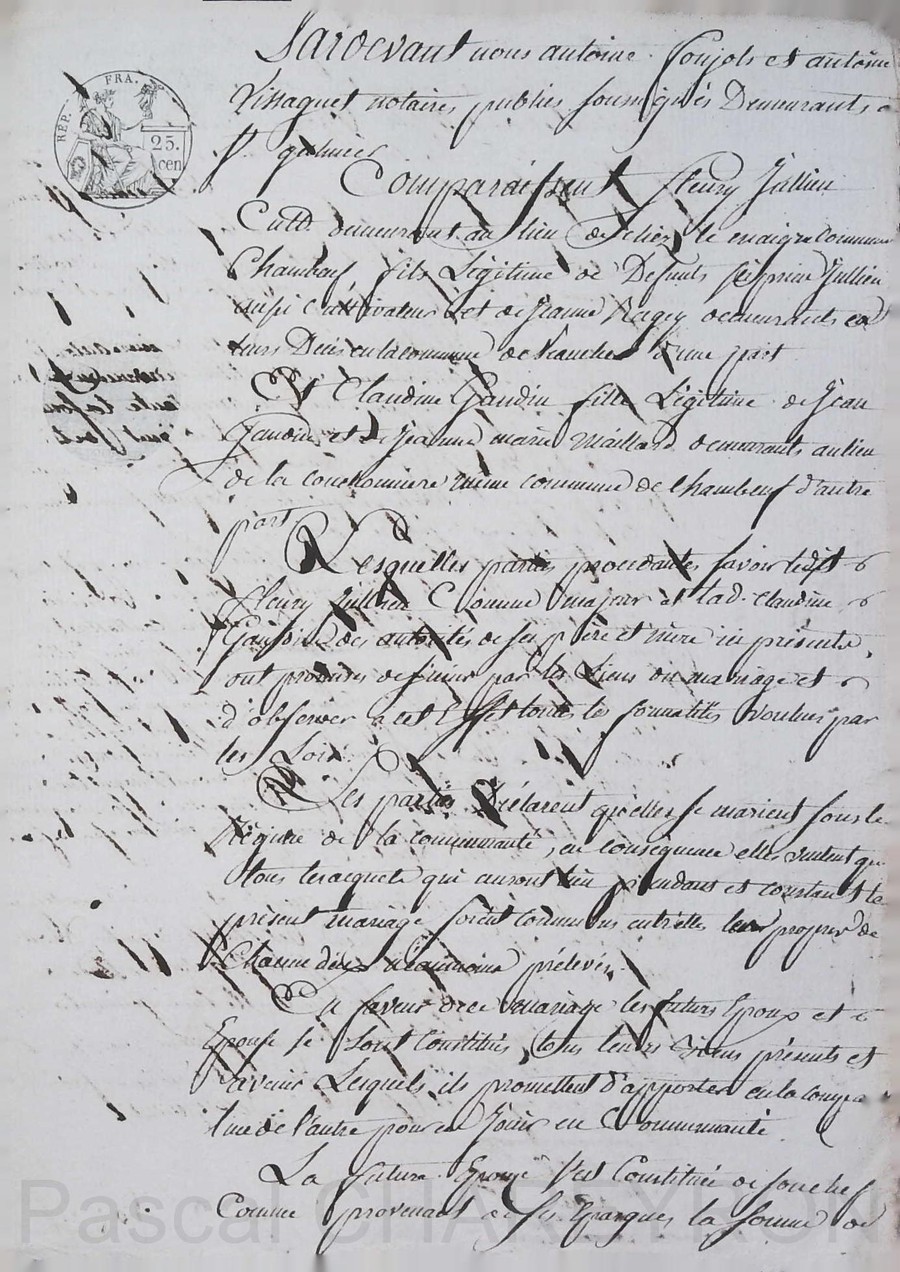 Pardevant nous antoine Soujols et antoine
Vissaguet notaires publics soussignés Demeurants a
RÉP. FRA.
25.
cen
St galmier
Comparaissent fleury Jullien
Cultr. demeurant au lieu de chez le maigre Commune
Chambeuf fils Légitime de Defunts Jullien
aussi Cultivateur et de Jeanne Ragey demeurants en
leurs Deux en la commune de d'une part
Et Claudine Gaudin fille Légitime de Jean
Gaudin et de Jeanne marie Maillard demeurants au lieu
de la même commune de Chambeuf d'autre
part
Lesquelles parties procedantes savoir ledit
fleury Jullien Comme majeur et lad. Claudine
Gaudin des autorités de ses père et mère ici présents,
ont promis de s'unir par les Liens du mariage et
d'observer a cet Effet toutes les formalités voulues par
les Lois.
Les parties Déclarent qu'elles se marient sous le
Régime de la communauté, en conséquence elles veulent que
tous les acquets qui auront lieu pendant et constant le
présent mariage soient Communs entr'elles leurs propres de
Chacune d'elles néanmoins prélevés.
En faveur de ce mariage les futurs Epoux et
Epouse se sont Constitués tous leurs Biens présents et
avenir Lesquels ils promettent d'apporter en la compa
l'un de l'autre pour en Jouir en Communauté.
La future Epouse s'est Constituée de son chef
Comme provenant de ses Epargnes la somme de
Pascal CHAREYRON